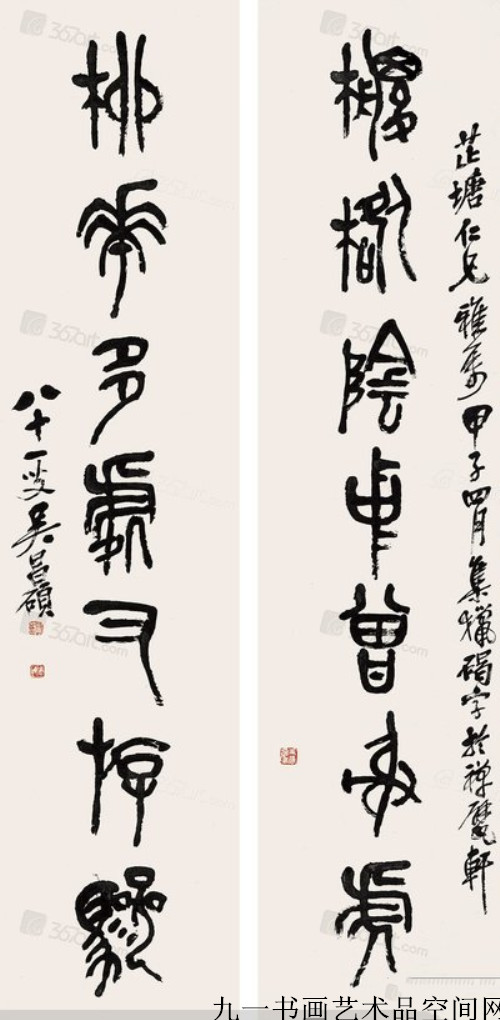 樹陰中曾射虎
芷塘仁兄雅屬甲子四月集獵碣字於禪甓軒
柳華多處又停
八十一叟吳昌碩
367art.com
九一书画艺术品空间网